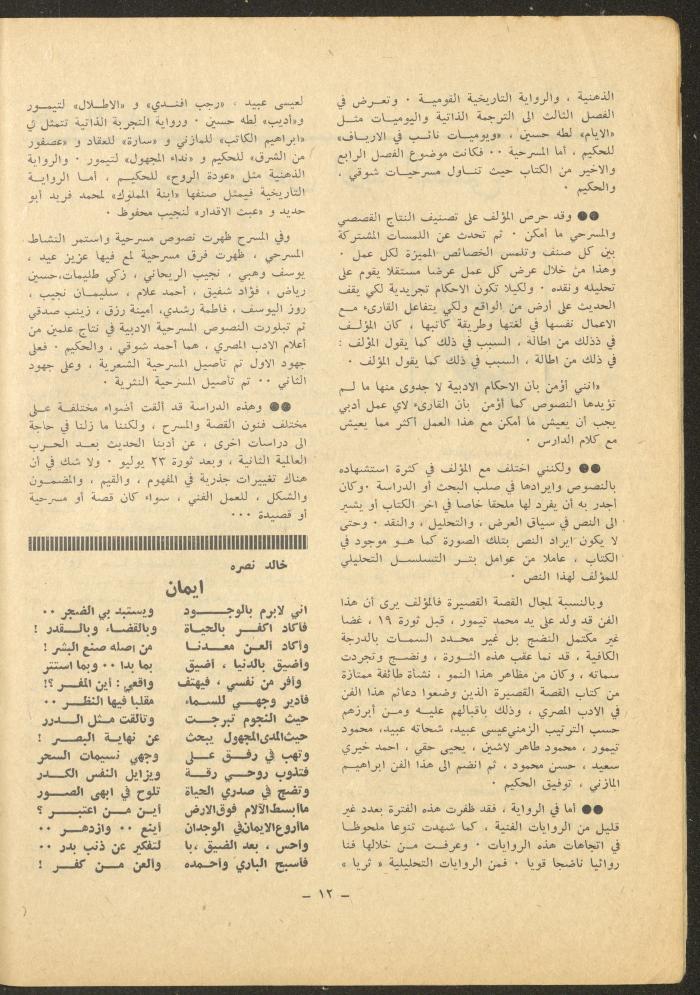 الذهنية ، والرواية التاريخية القومية ٠ وتعرض في
الفصل الثالث الى الترجمة الذاتية واليوميات مثل
«الايام» لطه حسين ، «ويوميات نائب في الارياف»
للحكيم ، أما المسرحية ٠٠ فكانت موضوع الفصل الرابع
والاخير من الكتاب حيث تناول مسرحيات شوقي ،
والحكيم ٠
●● وقد حرص المؤلف على تصنيف النتاج القصصي
والمسرحي ما أمكن ٠ ثم تحدث عن اللمسات المشتركة
بين كل صنف وتلمس الخصائص المميزة لكل عمل ٠
وهذا من خلال عرض كل عمل عرضا مستقلا يقوم على
تحليله ونقده ٠ ولكيلا تكون الاحكام تجريدية لكي يقف
الحديث على أرض من الواقع ولكي يتفاعل القارىء مع
الاعمال نفسها في لغتها وطريقة كاتبها ، كان المؤلف
في ذذلك من اطالة ، السبب في ذلك كما يقول المؤلف :
في ذلك من اطالة ، السبب في ذلك كما يقول المؤلف ٠
«انني أؤمن بأن الاحكام الادبية لا جدوى منها ما لم
تؤيدها النصوص كما أؤمن بأن القارىء لاي عمل أدبي
يجب أن يعيش ما أمكن مع هذا العمل أكثر مما يعيش
مع كلام الدارس ٠
●● ولكنني اختلف مع المؤلف في كثرة استشهاده
بالنصوص وايرادها في صلب البحث أو الدراسة ٠وكان
أجدر به أن يفرد لها ملحقا خاصا في اخر الكتاب أو يشير
الى النص في سياق العرض ، والتحليل ، والنقد ٠ وحتى
لا يكون ايراد النص بتلك الصورة كما هو موجود في
الكتاب ، عاملا من عوامل بتر التسلسل التحليلي
للمؤلف لهذا النص ٠
وبالنسبة لمجال القصة القصيرة فالمؤلف يرى أن هذا
الفن قد ولد على يد محمد تيمور ، قبل ثورة ١٩ ، غضا
غير مكتمل النضج بل غير محدد السمات بالدرجة
الكافية ، قد نما عقب هذه الثورة ، ونضج وتجردت
سماته ، وكان من مظاهر هذا النمو ، نشأة طائفة ممتازة
من كتاب القصة القصيرة الذين وضعوا دعائم هذا الفن
في الادب المصري ، وذلك باقبالهم عليه ومن أبرزهم
حسب الترتيب الزمنيعيسى عبيد، شحاته عبيد، محمود
تيمور ، محمود طاهر لاشين ، يحيى حقي ، احمد خيري
سعيد ، حسن محمود ، ثم انضم الى هذا الفن ابراهيم
المازني ، توفيق الحكيم ٠
●● أما في الرواية ، فقد ظفرت هذه الفترة بعدد غير
قليل من الروايات الفنية ، كما شهدت تنوعا ملحوظا
في اتجاهات هذه الروايات ٠ وعرفت من خلالها فنا
روائيا ناضجا قويا ٠ فمن الروايات التحليلية « ثريا »
لعيسى عبيد ، «رجب افندي» و «الاطلال» لتيمور
و«أديب» لطه حسين ٠ ورواية التجربة الذاتية تتمثل في
«ابراهيم الكاتب» للمازني و «سارة» للعقاد و «عصفور
من الشرق» للحكيم و «نداء المجهول» لتيمور ٠ والرواية
الذهنية مثل «عودة الروح» للحكيم ٠ أما الرواية
التاريخية فيمثل صنفها «ابنة المملوك» لمحمد فريد أبو
حديد و «عبث الاقدار» لنجيب محفوظ ٠
وفي المسرح ظهرت نصوص مسرحية واستمر النشاط
المسرحي ، ظهرت فرق مسرحية لمع فيها عزيز عيد ،
يوسف وهبي ، نجيب الريحاني ، زكي طليمات،حسين
رياض ، فؤاد شفيق ، أحمد علام ، سليمان نجيب ،
روز اليوسف ، فاطمة رشدي، أمينة رزق ، زينب صدقي
ثم تبلورت النصوص المسرحية الادبية في نتاج علمين من
أعلام الادب المصري ، هما أحمد شوقي ، والحكيم ٠ فعلى
جهود الاول تم تأصيل المسرحية الشعرية ، وعلى جهود
الثاني ٠٠ تم تأصيل المسرحية النثرية ٠
●● وهذه الدراسة قد ألقت أضواء مختلفة على
مختلف فنون القصة والمسرح ، ولكننا ما زلنا في حاجة
الى دراسات اخرى ، عن أدبنا الحديث بعد الحرب
العالمية الثانية ، وبعد ثورة ٢٣ يوليو ٠ ولا شك في أن
هناك تغييرات جذرية في المفهوم ، والقيم ، والمضمون
والشكل ، للعمل الفني ، سواء كان قصة أو مسرحية
أو قصيدة ٠٠٠
خالد نصره
ايمان
اني لابرم بالوجود ويستبد بي الضجر ٠٠
فأكاد اكفر بالحياة وبالقضاء وبالقدر !
وأكاد ألعن معدنا من اصله صنع البشر !
وأضيق بالدنيا ، أضيق بما بدا ٠٠ وبما استتر
وأفر من نفسي ، فيهتف واقعي : أين المفر ؟!
فأدير وجهي للسماء مقلبا فيها النظر ٠٠
حيث النجوم تبرجت وتألقت مثل الدرر
حيثالمدىالمجهول يبحث عن نهاية البصر !
وتهب في رفق على وجهي نسيمات السحر
فتذوب روحي رقة ويزايل النفس الكدر
وتضج في صدري الحياة تلوح في ابهى الصور
ماأبسطالآلام فوقالارض أين من اعتبر ؟
ماأروعالايمانفي الوجدان أينع ٠٠ وازدهر ٠٠
وأحس ، بعد الضيق ،با لتفكير عن ذنب بدر ٠٠
فأسبح الباري وأحمده وألعن من كفر !
– ١٢ –